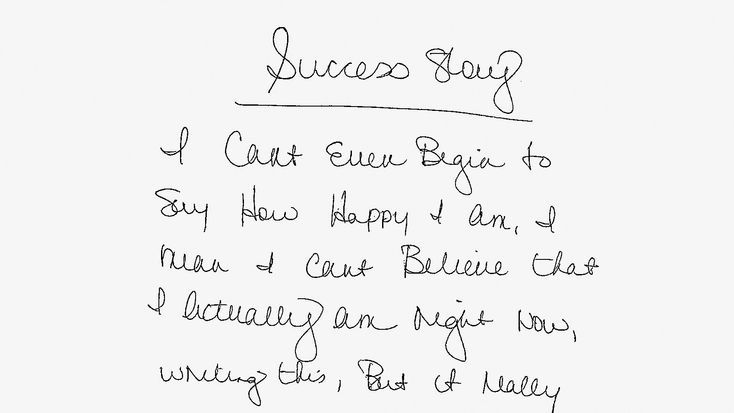 Success Story
I Cant Even Begin to
Say How Happy I am, I
mean I cant Believe that
I Actually am Right Now,
writing this, But it Really